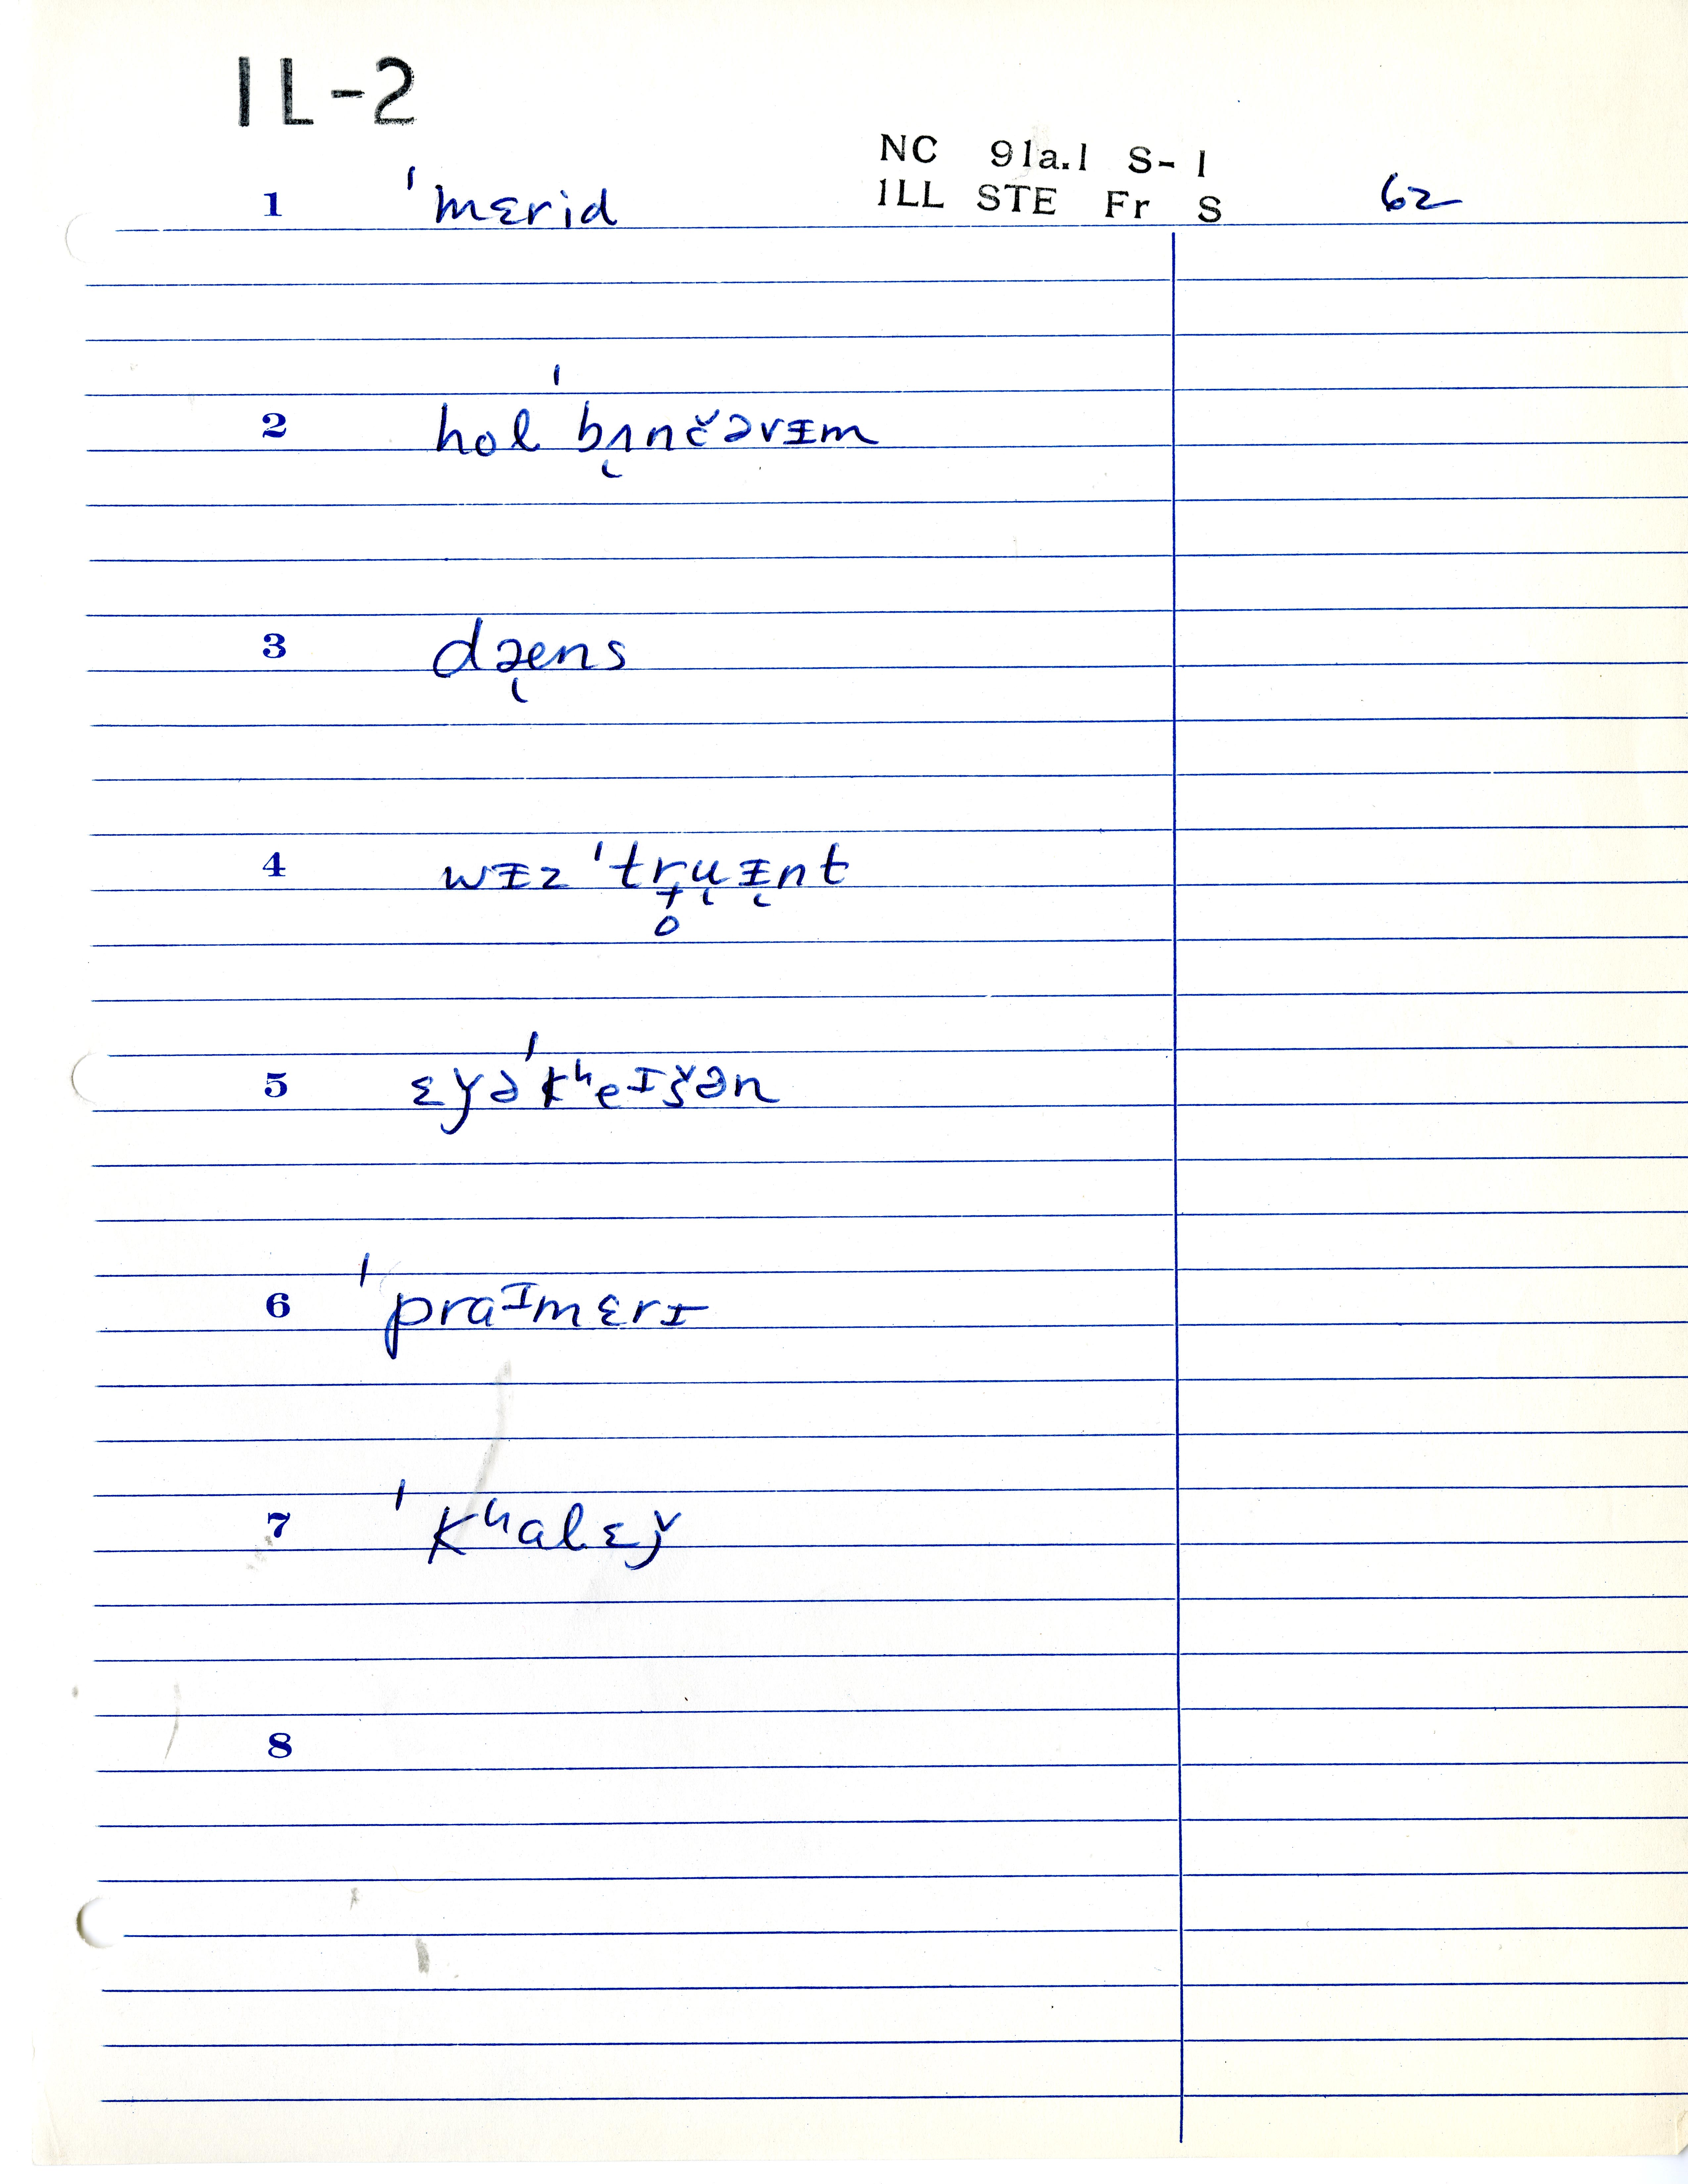 IL-2
NC 91a.1 S-1
ILL STE Fr S 62
1 ˈmɛrid
2 hol ˈbʌ̜nčəvɪm
3 dæ̜ens
4 wɪz ˈtr̟̥u̜ɪ̜nt
5 ɛy̌əˈkʰeɪšən
6 ˈpraᴵmɛrɪ
7 ˈkʰalɛǰ
8